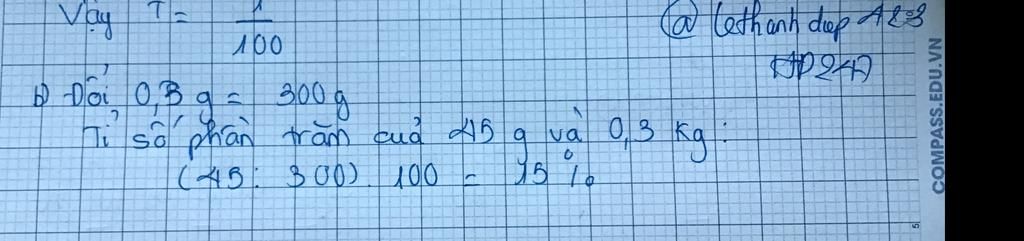 Vậy T = 1/100
@ lethanh diep
b) Đổi 0,3 g = 300g
Tỉ số phần trăm của 45 g và 0,3 kg:
(45: 300). 100 = 15%
COMPASS.EDU.VN
5